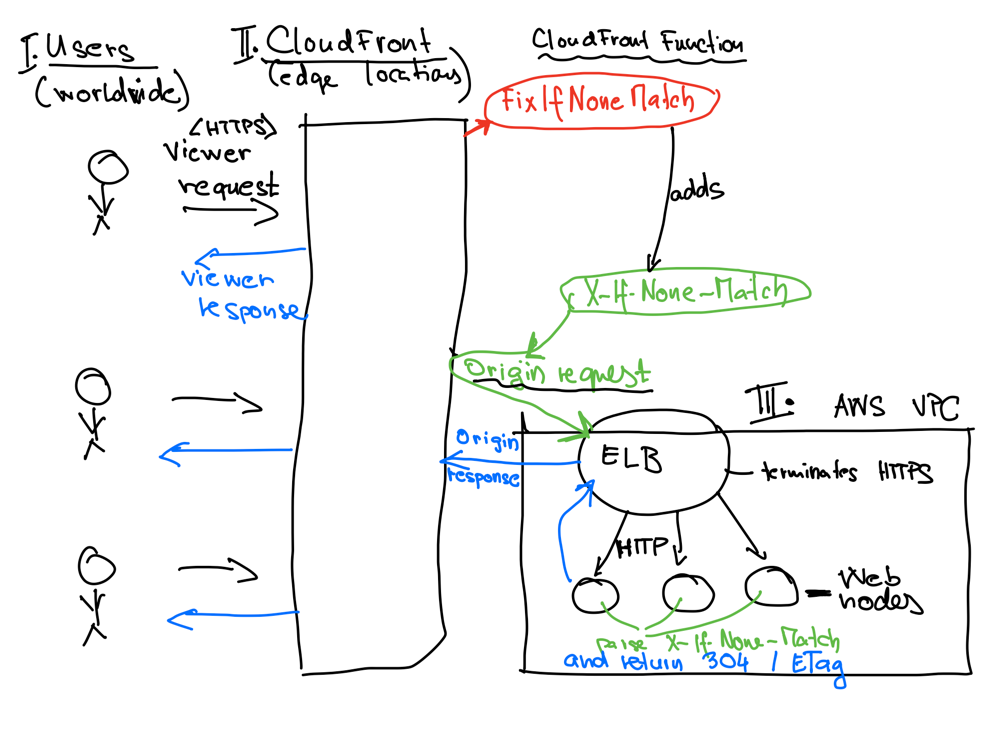 I. Users
(worldwide)
II. CloudFront
(edge locations)
CloudFront Function
FixIfNoneMatch
<HTTPS>
Viewer
request
adds
Viewer
response
X-If-None-Match
Origin request
III. AWS VPC
Origin
response
ELB
terminates HTTPS
HTTP
Web
nodes
parse X-If-None-Match
and return 304 / ETag